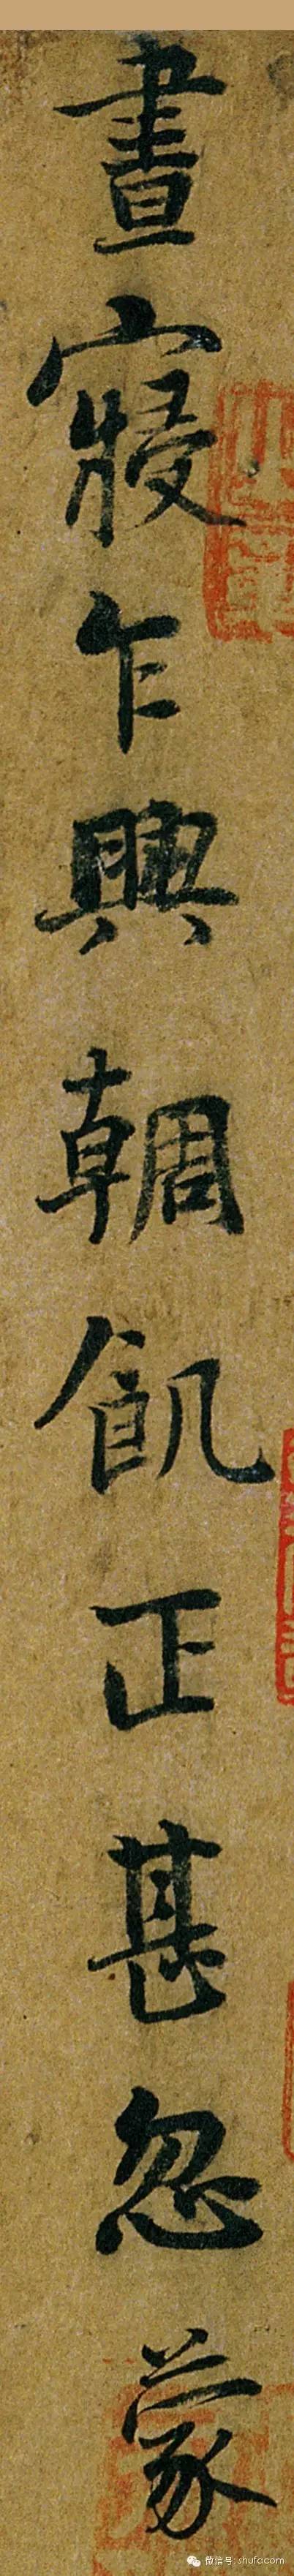 晝寢乍興輖飢正甚忽蒙
微信号: shufacom